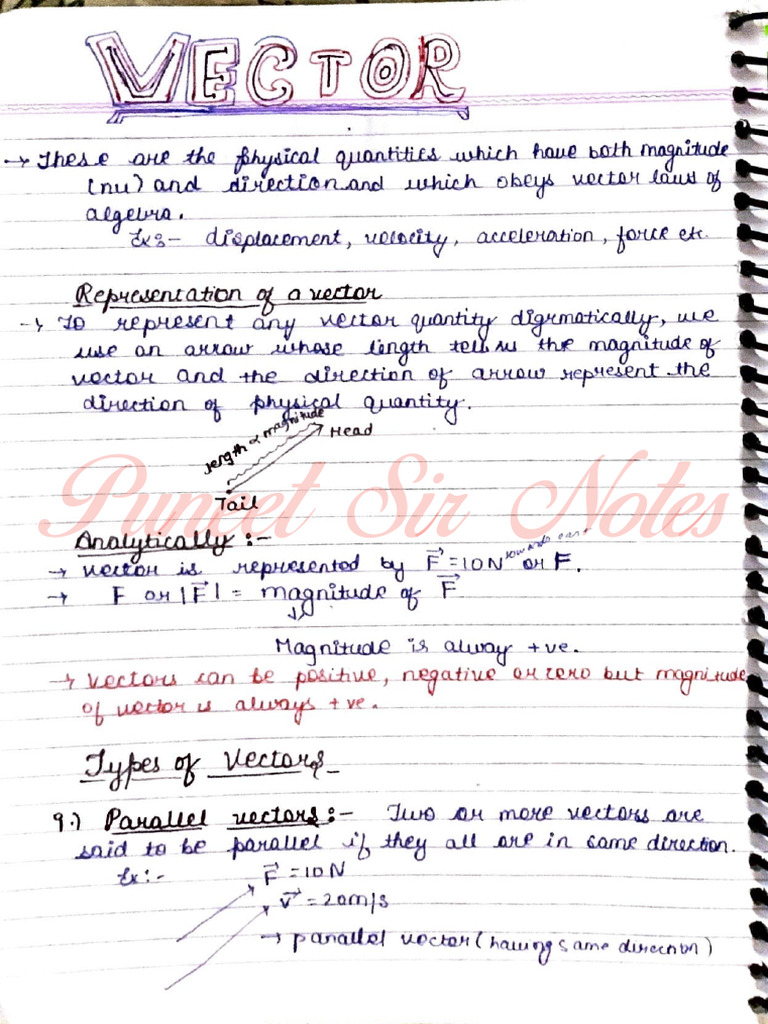 VECTOR
→ These are the physical quantities which have both magnitude
(nu) and direction and which obeys vector laws of
algebra.
Ex:- displacement, velocity, acceleration, force etc.
Representation of a vector
→ To represent any vector quantity digrmatically, we
use an arrow whose length tell us the magnitude of
vector and the direction of arrow represent the
direction of physical quantity.
length ∝ magnitude
Head
Tail
Puneet Sir Notes
Analytically :-
→ Vector is represented by F⃗ = 10N towards east or F.
→ F or |F⃗| = magnitude of F⃗
↓
Magnitude is alway +ve.
→ Vectors can be positive, negative or zero but magnitude
of vector is always +ve.
Types of Vectors
9.) Parallel vectors :- Two or more vectors are
said to be parallel if they all are in same direction.
Ex :- F⃗ = 10N
v⃗ = 20m/s
→ parallel vector (having same direction)